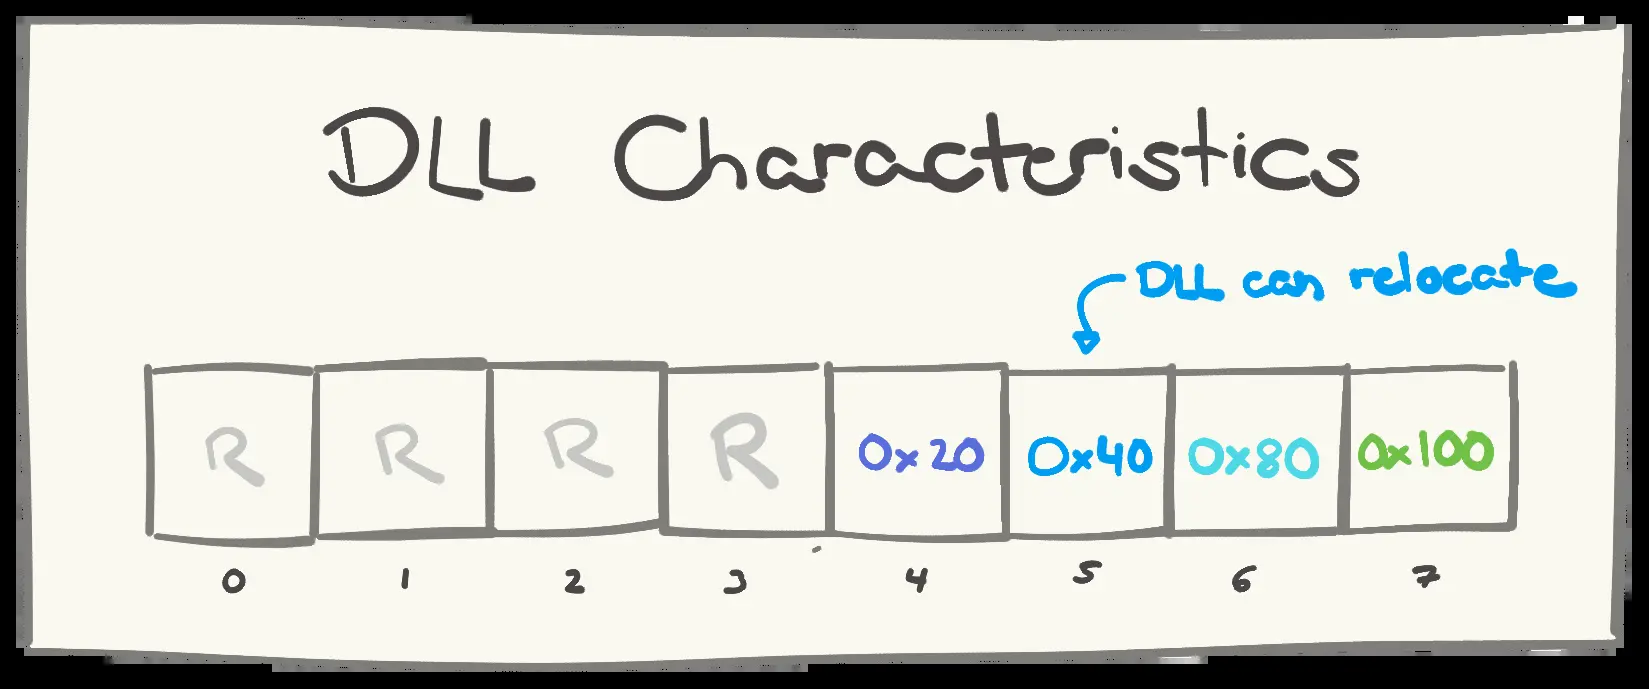 DLL Characteristics
DLL can relocate
R R R R 0x20 0x40 0x80 0x100
0 1 2 3 4 5 6 7